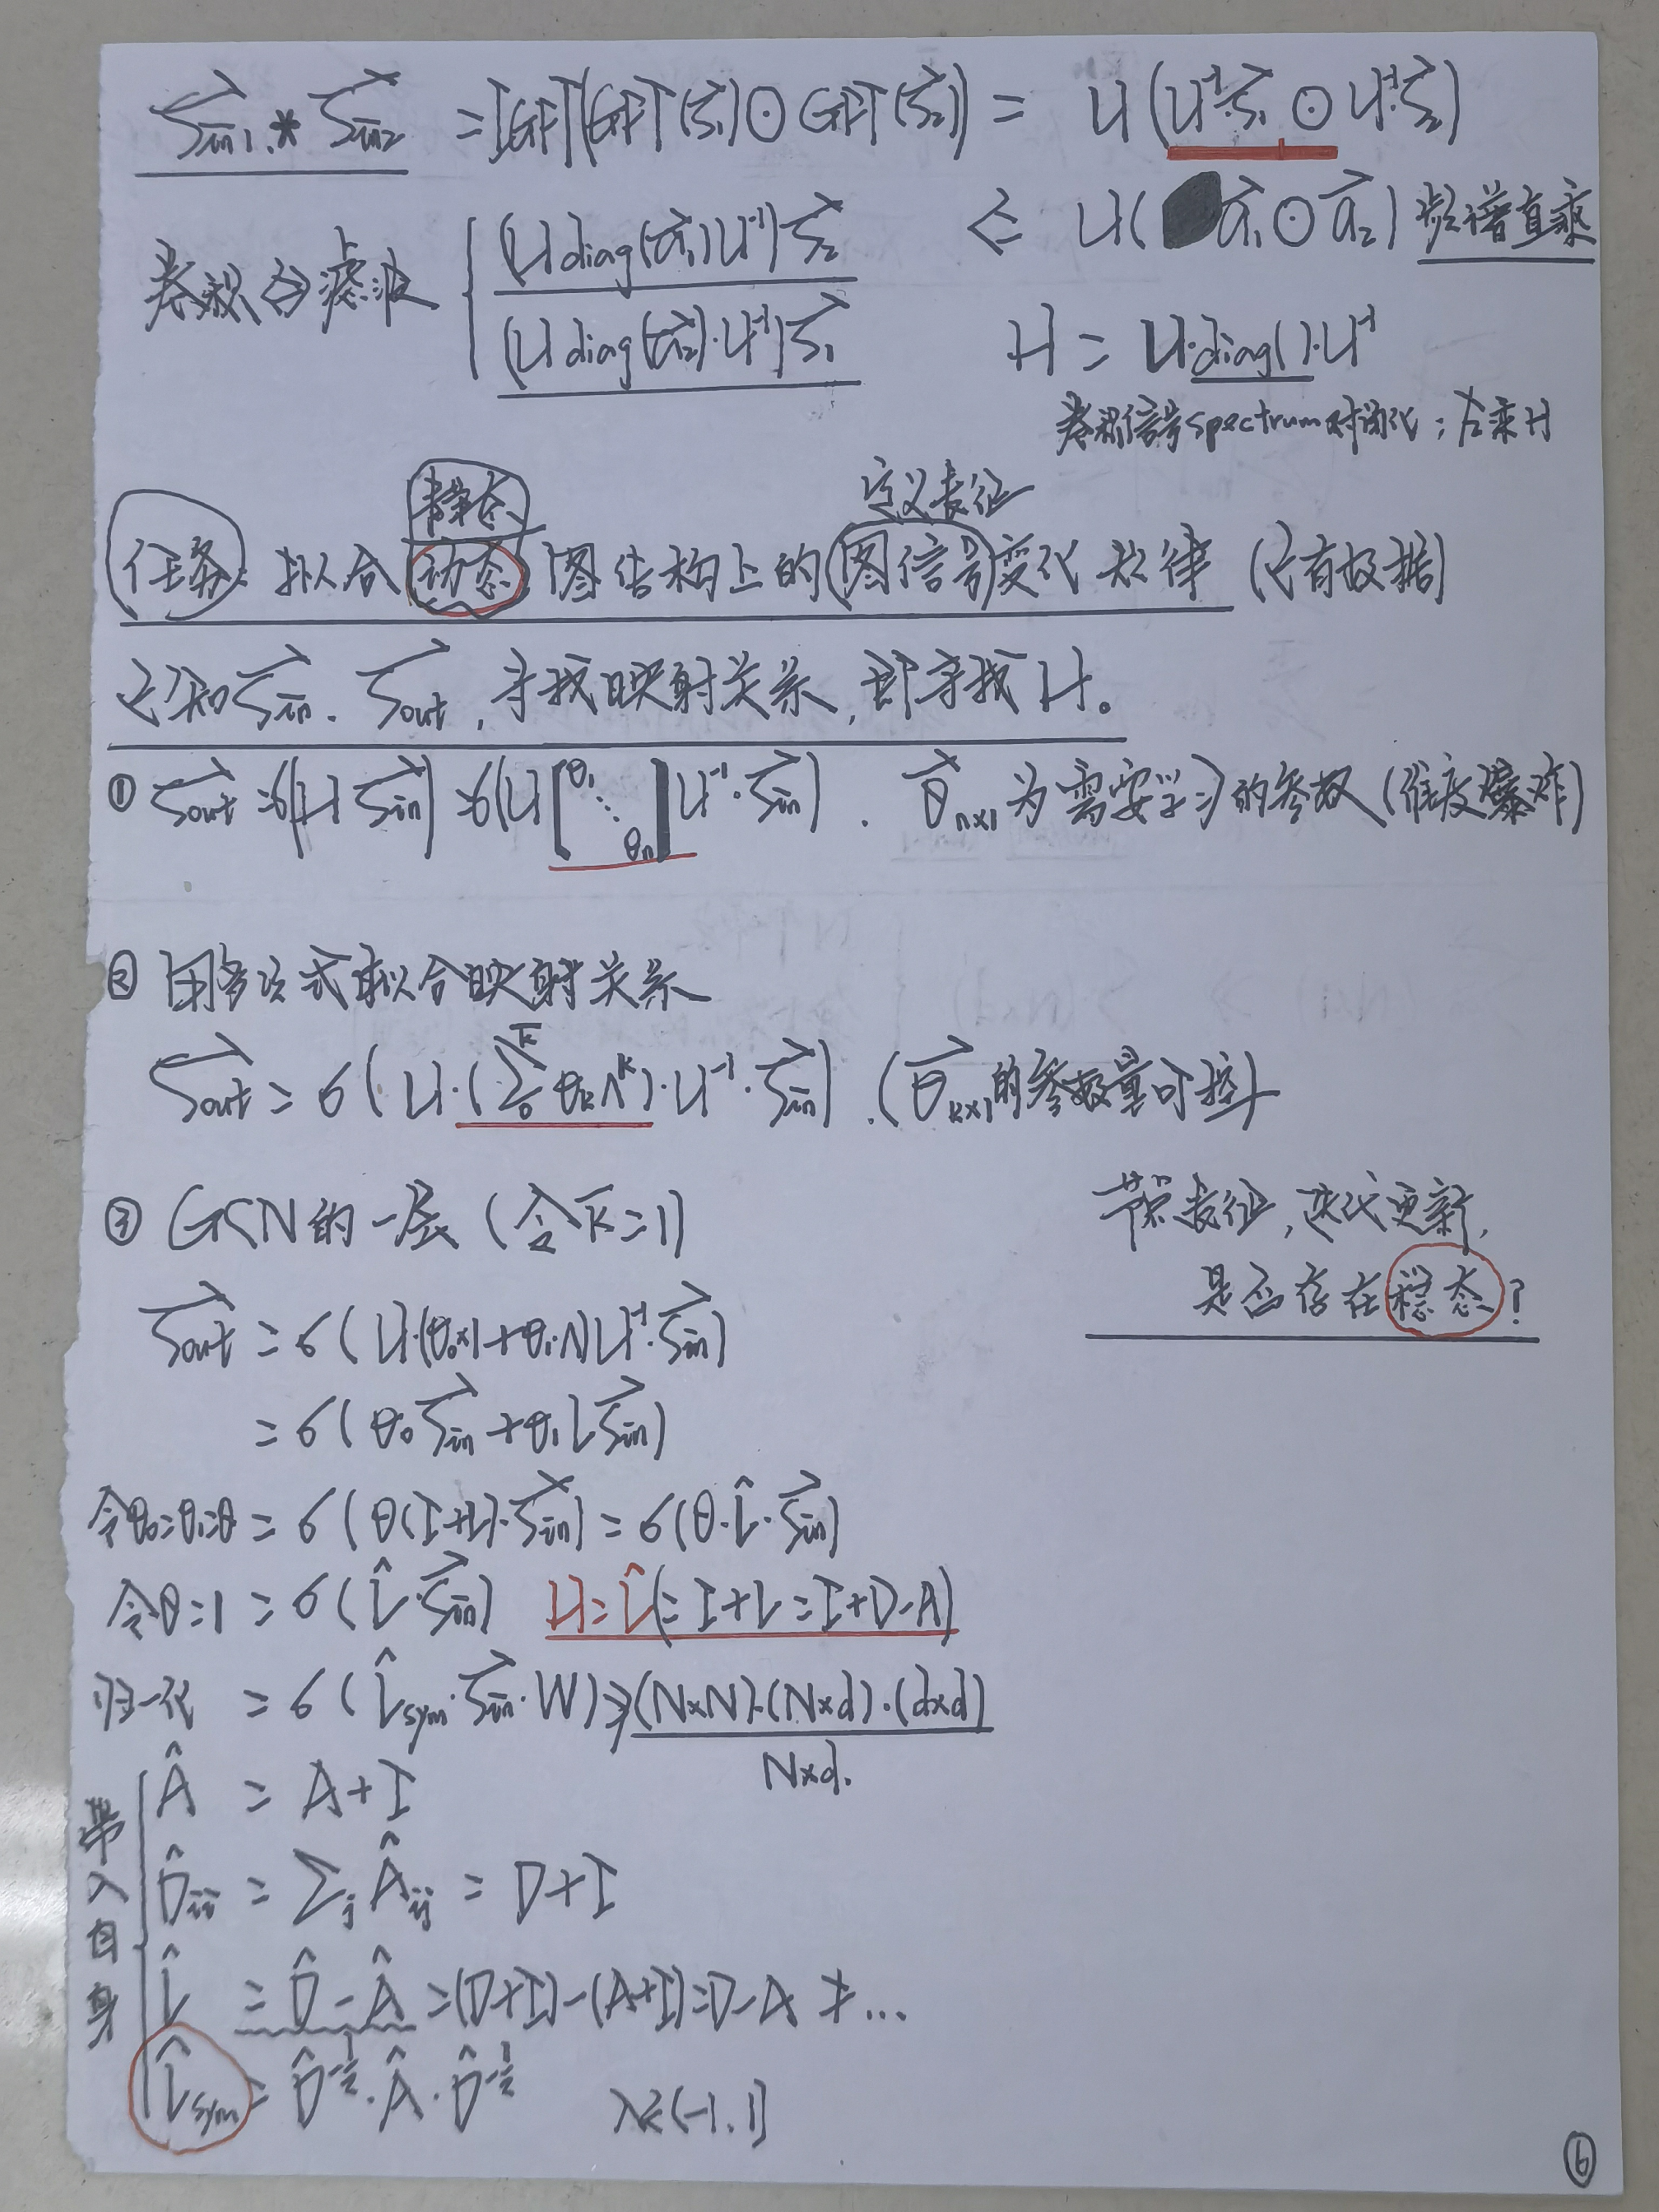 S⃗in1 * S⃗in2 = IGFT(GFT(S⃗1)⊙GFT(S⃗2)) = U(U⁻¹·S⃗1 ⊙ U⁻¹·S⃗2)
⇐ U(a⃗1⊙a⃗2) 频谱直乘
卷积⇔滤波 { (U diag(a⃗1)U⁻¹)S⃗2
(U diag(a⃗2)·U⁻¹)S⃗1
H = U·diag()·U⁻¹
卷积信号spectrum对角化;左乘H
静态 定义表征
任务: 拟合 动态 图结构上的图信号变化规律 (只有数据)
已知S⃗in. S⃗out, 寻找映射关系, 即寻找H。
① S⃗out = σ(H S⃗in) = σ(U[θ1 ⋱ θn]U⁻¹·S⃗in). θ⃗n×1为需要学习的参数(维度爆炸)
② 用多项式拟合映射关系
S⃗out = σ(U·(∑₀ᴷ θkΛᵏ)·U⁻¹·S⃗in). (θ⃗k×1的参数量可控)
③ GCN的一层 (令K=1)
节点表征, 迭代更新,
是否存在稳态?
S⃗out = σ(U·(θ0×1+θ1·Λ)U⁻¹·S⃗in)
= σ(θ0 S⃗in+θ1 L S⃗in)
令θ0=θ1=θ = σ(θ(I+L)·S⃗in) = σ(θ·L̂·S⃗in)
令θ=1 = σ(L̂·S⃗in) H=L̂(=I+L=I+D-A)
归一化 = σ(L̂sym·S⃗in·W) ⇒ (N×N)·(N×d)·(d×d)
N×d.
带入自身
Â = A+I
D̂ii = ∑j Âij = D+I
L̂ = D̂-Â = (D+I)-(A+I)=D-A ≠ ...
L̂sym = D̂^-½·Â·D̂^-½ λ∈(-1,1]
⑥